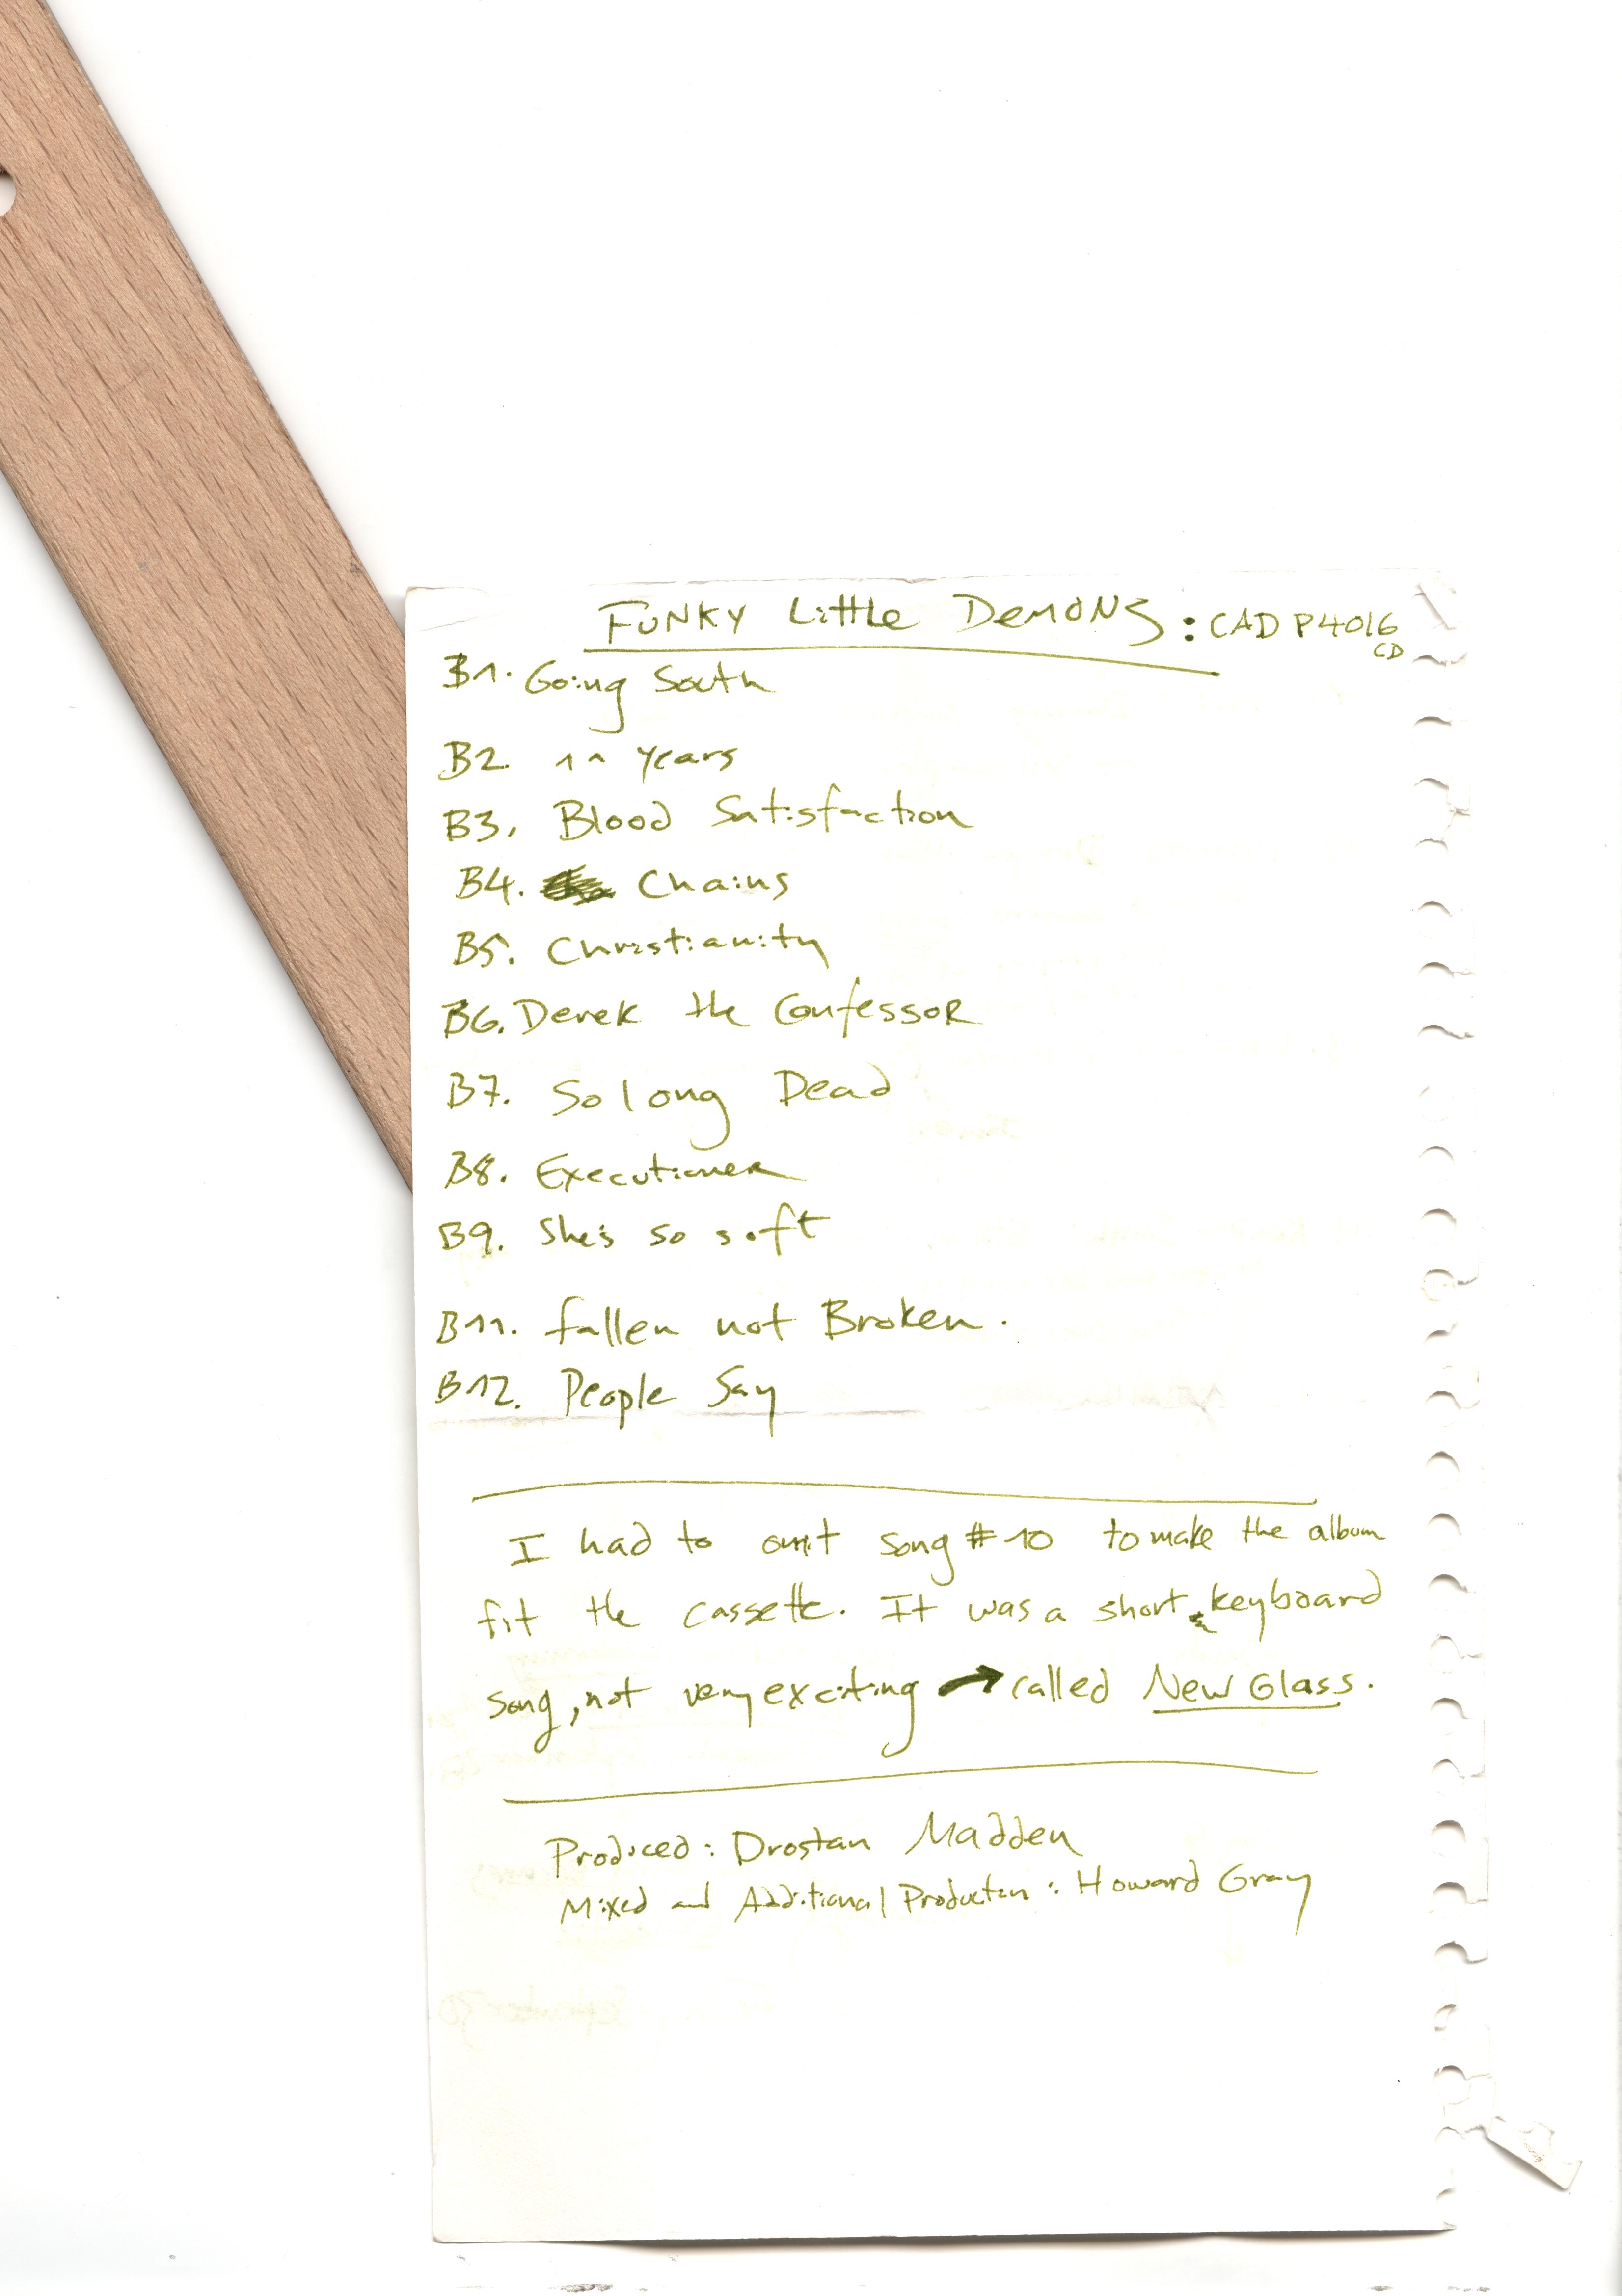 FUNKY Little DemONS : CAD P4016
CD
B1. Going South
B2. 11 Years
B3. Blood Satisfaction
B4. Chains
B5. Christianity
B6. Derek the Confessor
B7. So long Dead
B8. Executioner
B9. She's so soft
B11. fallen not Broken.
B12. People Say
I had to omit song #10 to make the album
fit the cassette. It was a short keyboard
song, not very exciting → called New Glass.
Produced: Drostan Madden
Mixed and Additional Production: Howard Gray